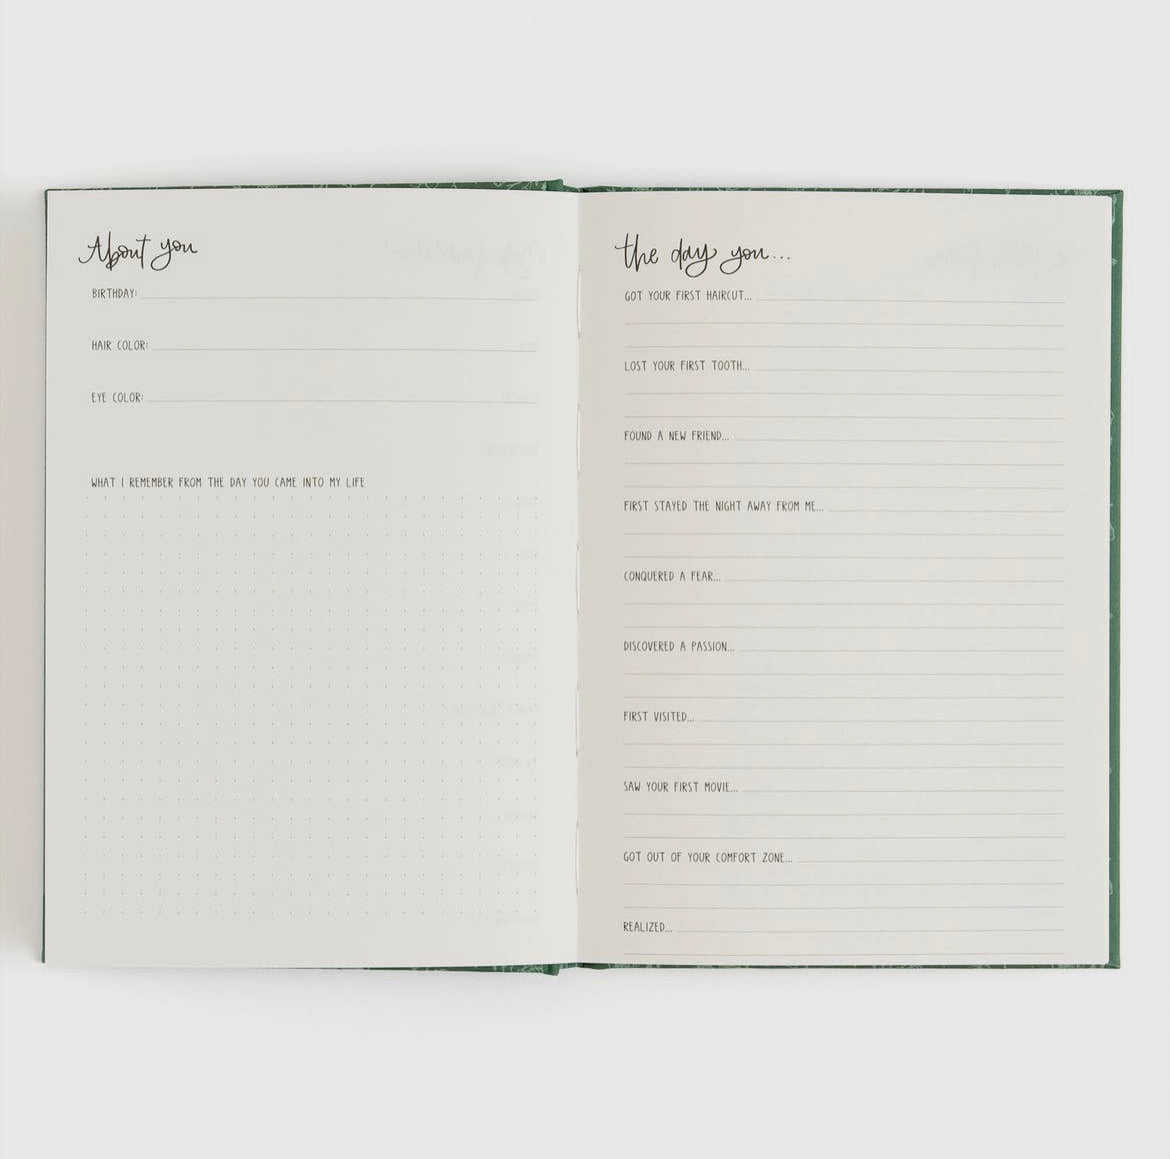 About you
BIRTHDAY:
HAIR COLOR:
EYE COLOR:
WHAT I REMEMBER FROM THE DAY YOU CAME INTO MY LIFE
the day you...
GOT YOUR FIRST HAIRCUT...
LOST YOUR FIRST TOOTH...
FOUND A NEW FRIEND...
FIRST STAYED THE NIGHT AWAY FROM ME...
CONQUERED A FEAR...
DISCOVERED A PASSION...
FIRST VISITED...
SAW YOUR FIRST MOVIE...
GOT OUT OF YOUR COMFORT ZONE...
REALIZED...